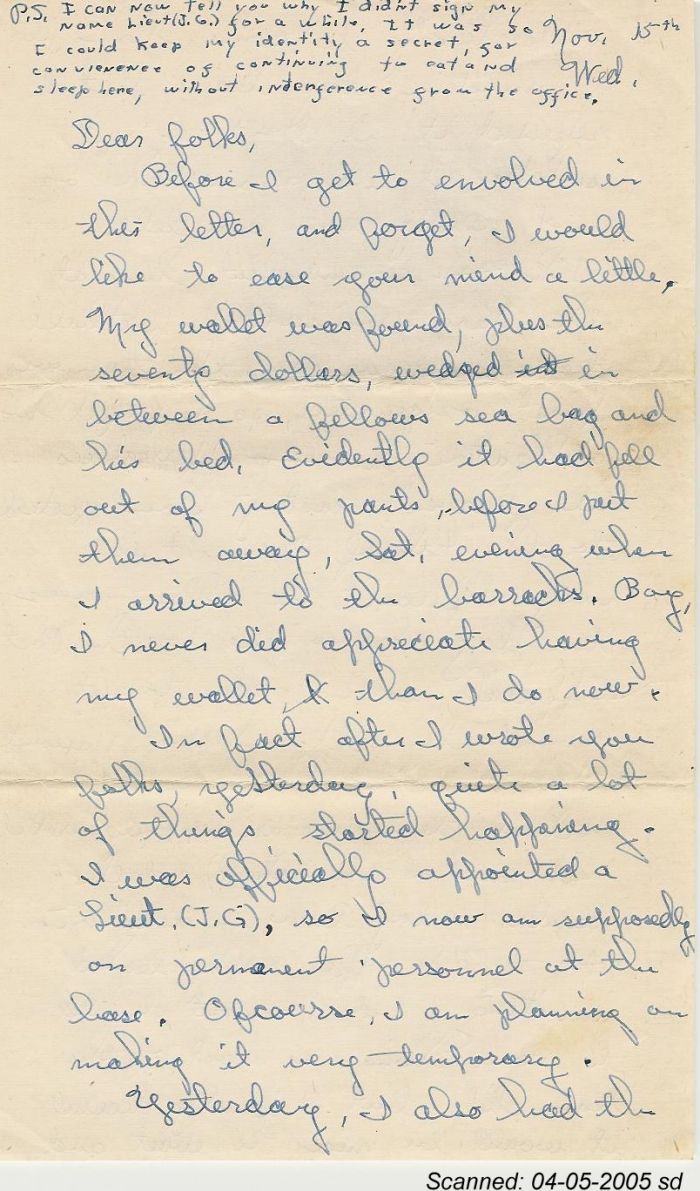 P.S. I can now tell you why I didn't sign my
name Lieut(J.G.) for a while, It was so
I could keep my identity a secret, for
convienence of continuing to eat and
sleep here, without interference from the office.
Nov. 15th
Wed.
Dear folks,
Before I get to envolved in
this letter, and forget, I would
like to ease your mind a little.
My wallet was found, plus the
seventy dollars, wedged in
between a fellows sea bag and
his bed. Evidently it had fell
out of my pants, before I put
them away, Sat. evening when
I arrived to the barracks. Boy,
I never did appreciate having
my wallet, than I do now.
In fact after I wrote you
folks, yesterday, quite a lot
of things started happining.
I was officially appointed a
Lieut.(J.G), so I now am supposedly
on permanent personnel at the
base. Ofcourse, I am planning on
making it very temporary.
Yesterday, I also had the
Scanned: 04-05-2005 sd